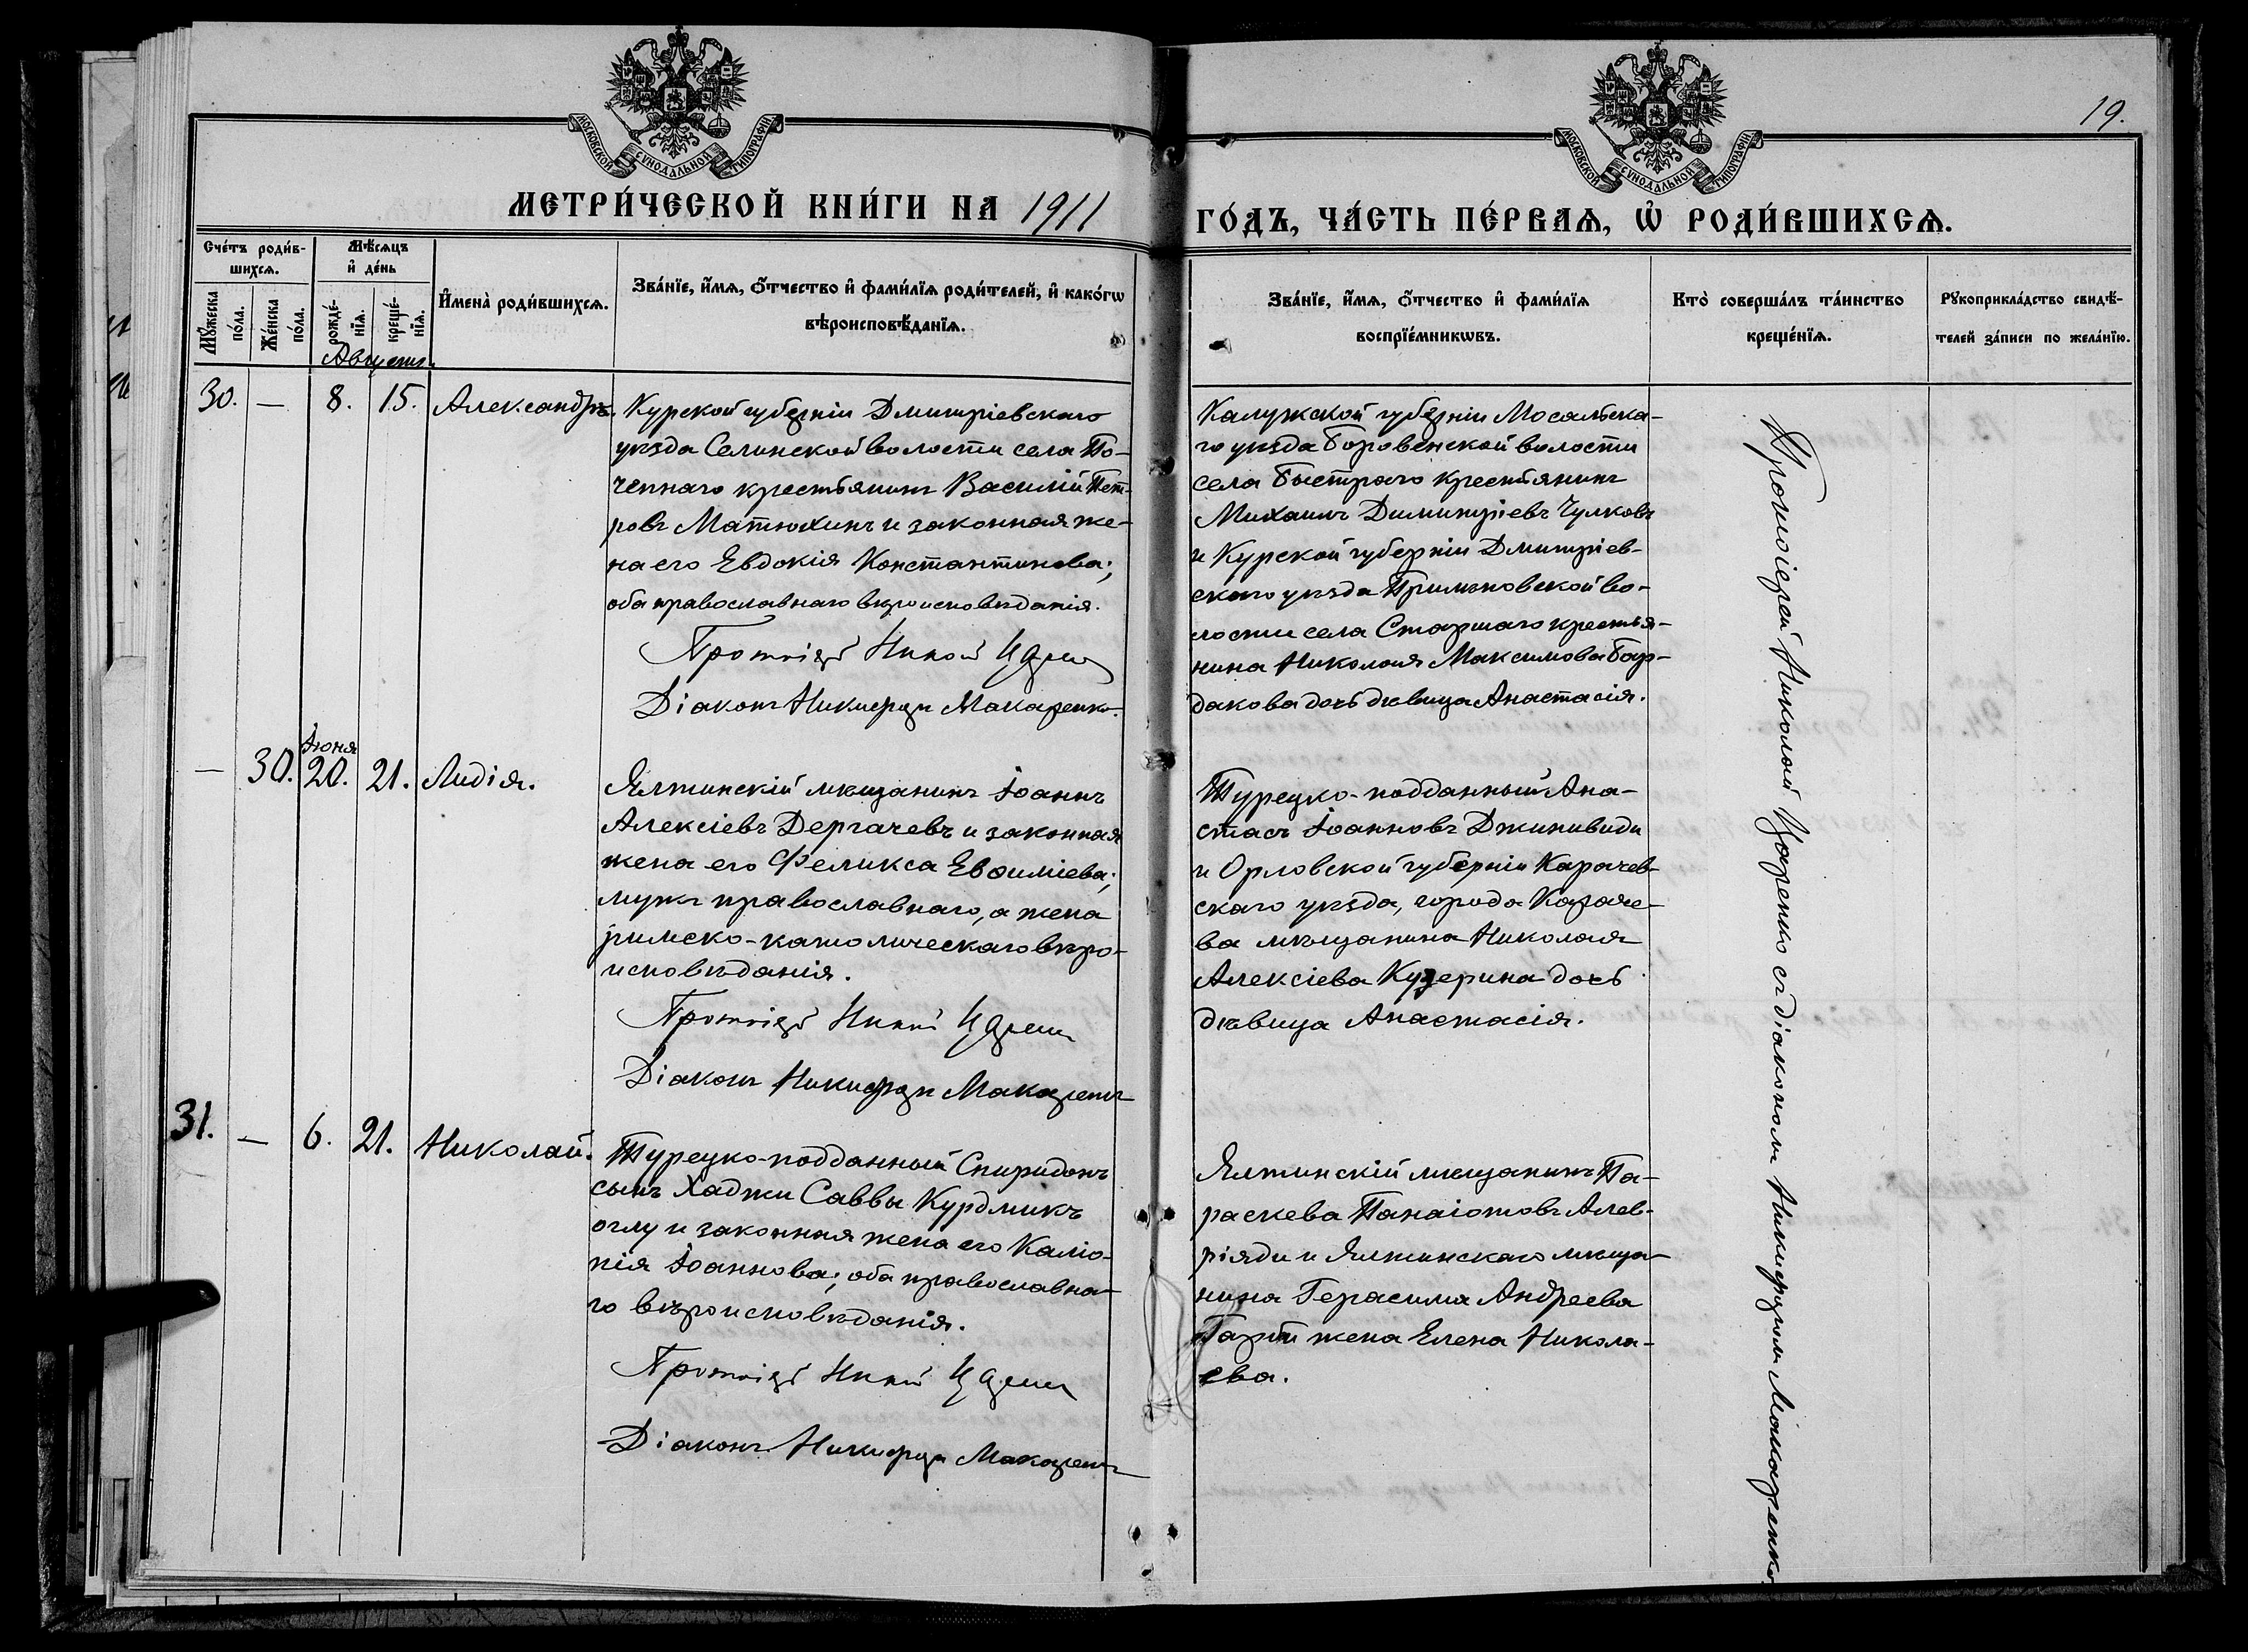 19.
МОСКОВСКОЙ СѴНОДАЛЬНОЙ ТИПОГРАФІИ
МОСКОВСКОЙ СѴНОДАЛЬНОЙ ТИПОГРАФІИ
МЕТРИ́ЧЕСКОЙ КНИ́ГИ НА 1911
ГО́ДЪ, ЧА́СТЬ ПЕ́РВАѦ, Ѡ҆ РОДИ́ВШИХСѦ.
Сче́тъ роди́в-
шихсѧ.
Мꙋ́жеска
по́ла.
Же́нска
по́ла.
Мѣ́сѧцъ
и҆ де́нь
рожде́-
нїѧ.
креще́-
нїѧ.
И҆мена̀ роди́вшихсѧ.
Зва́нїе, и҆́мѧ, ѻ҆́тчество и҆ фами́лїѧ роди́телей, и҆ како́гѡ
вѣроисповѣ́данїѧ.
Зва́нїе, и҆́мѧ, ѻ҆́тчество и҆ фами́лїѧ
воспрїе́мникѡвъ.
Кто̀ соверша́лъ та́инство
креще́нїѧ.
Рꙋкоприкла́дство свидѣ́-
телей за́писи по жела́нїю.
Августъ.
30. — 8. 15. Александръ.
Курской губерніи Дмитріевскаго
уѣзда Селинской волости села По-
чепнаго крестьянинъ Василій Пет-
ровъ Матюхинъ и законная же-
на его Евдокія Константинова;
оба православнаго вѣроисповѣданія.
Діаконъ Никифоръ Макаренко.
Калужской губерніи Мосальска-
го уѣзда Боровенской волости
села Быстраго крестьянинъ
Михаилъ Димитріевъ Чулковъ
и Курской губерніи Дмитріев-
скаго уѣзда Прилѣповской во-
лости села Старшаго крестья-
нина Николая Максимова Бар-
дакова дочь дѣвица Анастасія.
Протоіерей Николай Царенко съ діакономъ Никифоромъ Макаренко.
— 30. Іюня 20. 21. Лидія.
Ялтинскій мѣщанинъ Іоаннъ
Алексіевъ Дергачевъ и законная
жена его Феликса Евѳиміева;
мужъ православнаго, а жена
римско-католическаго вѣро-
исповѣданія.
Діаконъ Никифоръ Макаренко
Турецко-подданный Ана-
стасъ Іоанновъ Джинивиди
и Орловской губерніи Карачев-
скаго уѣзда, города Караче-
ва мѣщанина Николая
Алексіева Кузерина дочь
дѣвица Анастасія.
31. — 6. 21. Николай.
Турецко-подданный Спиридонъ
сынъ Хаджи Саввы Курдмикъ
оглу и законная жена его Каліо-
пія Іоаннова; оба православна-
го вѣроисповѣданія.
Діаконъ Никифоръ Макаренко
Ялтинскій мѣщанинъ Па-
раскева Панаіотовъ Алев-
ріяди и Ялтинскаго мѣща-
нина Герасима Андреева
жена Елена Никола-
ева.